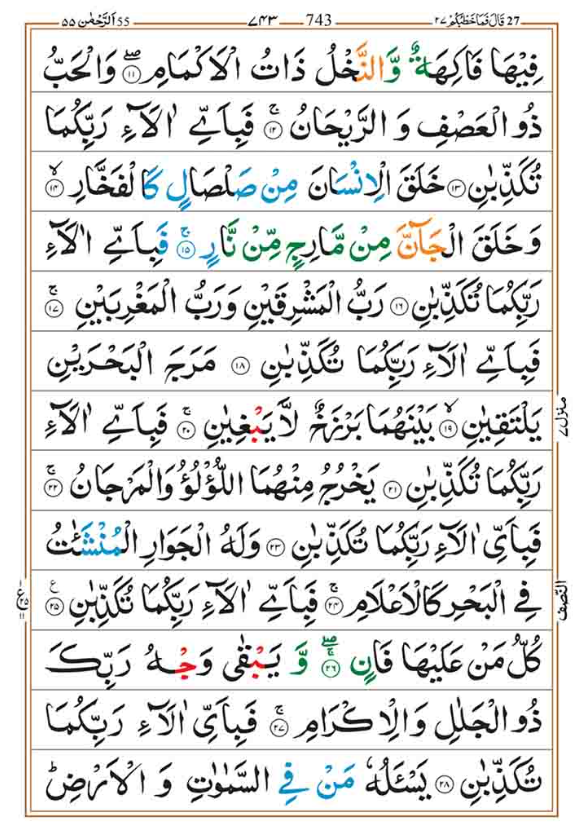 27 قَالَ فَمَا خَطْبُكُمْ ٢٧ 743 ٧٤٣ 55 اَلرَّحْمٰن ٥٥
فِيْهَا فَاكِهَةٌ وَّالنَّخْلُ ذَاتُ الْاَكْمَامِ ۖ ۚ ١١ وَالْحَبُّ
ذُو الْعَصْفِ وَ الرَّيْحَانُ ۚ ١٢ فَبِاَيِّ اٰلَآءِ رَبِّكُمَا
تُكَذِّبٰنِ ١٣ خَلَقَ الْاِنْسَانَ مِنْ صَلْصَالٍ كَالْفَخَّارِ ۙ ١٤
وَ خَلَقَ الْجَآنَّ مِنْ مَّارِجٍ مِّنْ نَّارٍ ۚ ١٥ فَبِاَيِّ اٰلَآءِ
رَبِّكُمَا تُكَذِّبٰنِ ١٦ رَبُّ الْمَشْرِقَيْنِ وَرَبُّ الْمَغْرِبَيْنِ ۚ ١٧
فَبِاَيِّ اٰلَآءِ رَبِّكُمَا تُكَذِّبٰنِ ١٨ مَرَجَ الْبَحْرَيْنِ
يَلْتَقِيٰنِ ۙ ١٩ بَيْنَهُمَا بَرْزَخٌ لَّا يَبْغِيٰنِ ۚ ٢٠ فَبِاَيِّ اٰلَآءِ
منزل ٧
رَبِّكُمَا تُكَذِّبٰنِ ٢١ يَخْرُجُ مِنْهُمَا اللُّؤْلُؤُ وَالْمَرْجَانُ ۚ ٢٢
فَبِاَيِّ اٰلَآءِ رَبِّكُمَا تُكَذِّبٰنِ ٢٣ وَلَهُ الْجَوَارِ الْمُنْشَئٰتُ
فِي الْبَحْرِ كَالْاَعْلَامِ ۚ ٢٤ فَبِاَيِّ اٰلَآءِ رَبِّكُمَا تُكَذِّبٰنِ ٢٥ ع
النصف
كُلُّ مَنْ عَلَيْهَا فَانٍ ۖ ۚ ٢٦ وَّ يَبْقٰى وَجْهُ رَبِّكَ
ذُو الْجَلٰلِ وَ الْاِكْرَامِ ۚ ٢٧ فَبِاَيِّ اٰلَآءِ رَبِّكُمَا
تُكَذِّبٰنِ ٢٨ يَسْـَٔلُهٗ مَنْ فِي السَّمٰوٰتِ وَ الْاَرْضِ ؕ